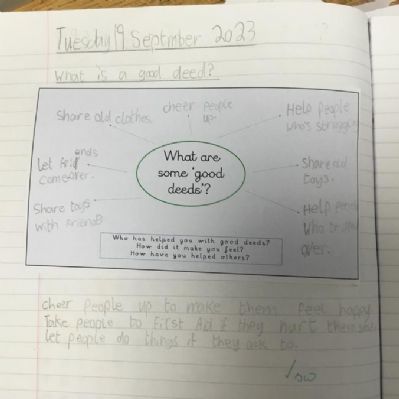 Tuesday 19 Septmber 2023
What is a good deed?
Share old clothes
cheer people
up
Help people
who's
Let
ends
come over.
What are
some 'good
deeds'?
Share old
toys.
Share toys
with friends
Help
Who
over.
Who has helped you with good deeds?
How did it make you feel?
How have you helped others?
cheer people up to make them feel happy
Take people to First Aid if they hurt
let people do things if they ask to.